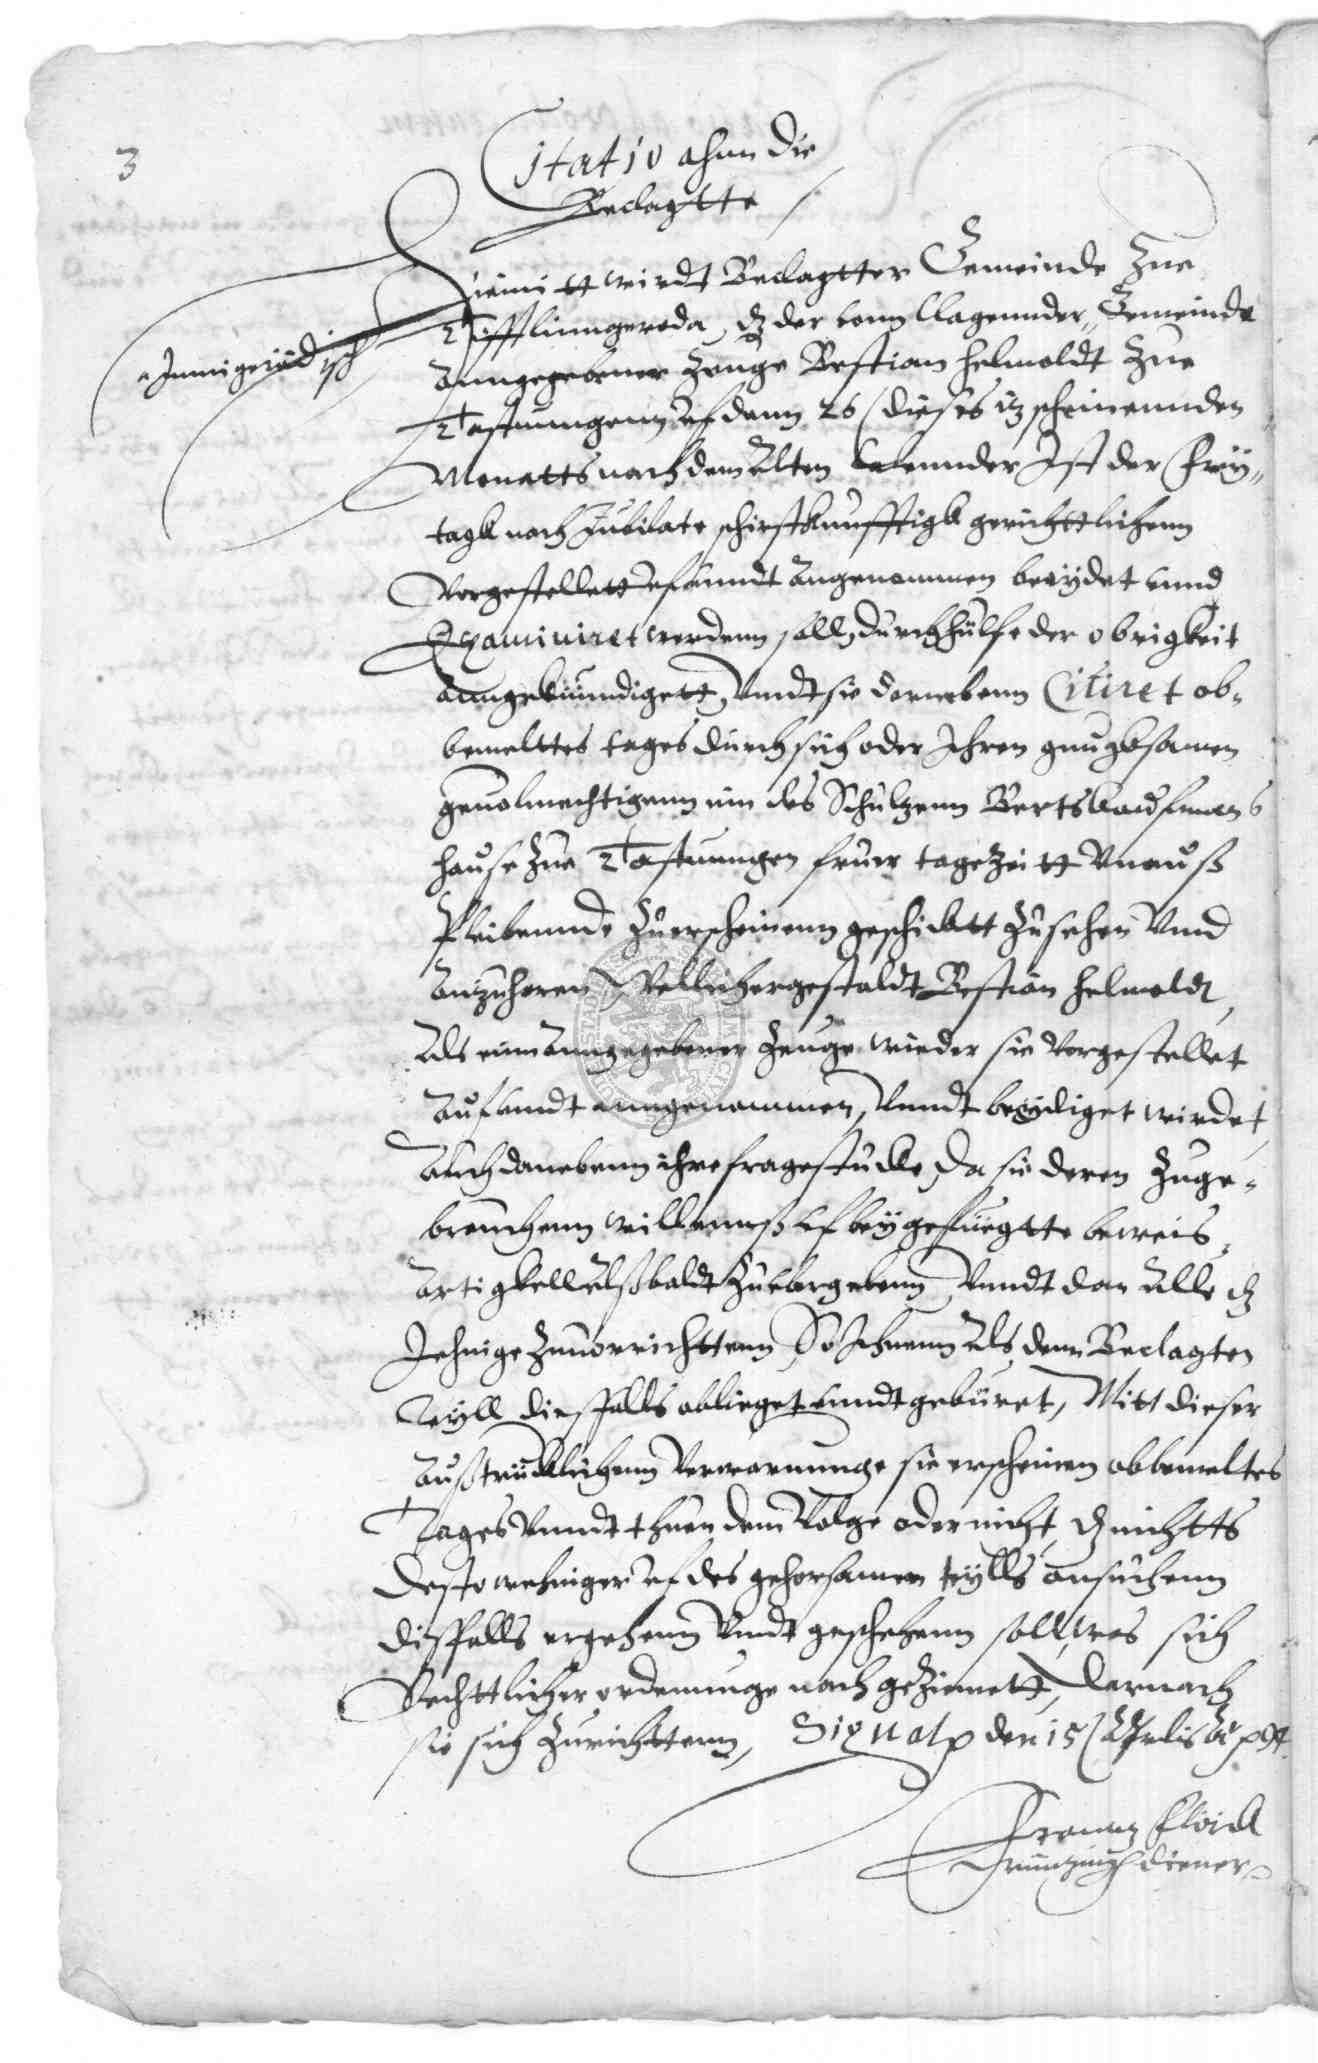 3
Citatio ahnn die
Beclagtte
Hiemitt wirdt Beclagtter Gemeinde Zue
Tifftlinngeroda, dz der vonn Clagennder Gemeinde
Anngegebener Zeuge Bestian Helmoldt Zue
Tastunngenn vf denn 26 dieses itz scheinennden
Monatts nach dem Alten Calennder Ist der Frey-
tagk nach Jubilate schirstkunfftigk gerichttlichenn
Vorgestellett vf vnndt Angenommen beeydet vnnd
Examiniret werdenn soll, durch hülfe der obrigkeit
Anngekünndigett, Vnndt sie darnebenn Citiret ob-
bemelttes tages durch sich oder Ihren gnugksamen
geuolmechtigenn inn des Schultzenn
hause Zue Tastunngen fruer tagezeitt Vnauß
Pleibennde Zuerscheinenn geschicktt Zusehen Vnnd
Anzuhoren, Wellichergestaldt Bestian Helmoldt,
Als einn Anngegebener Zeuge wieder sie Vorgestellet
Auf vnndt anngenommen, Vnndt beeydiget wirdet,
Auch danebenn ihre fragestucke, Da sie deren Zuge-
brauchenn willennß vf beygefuegtte beweis-
Artigkell Alßbaldt Zuvbergebenn, Vnndt dan Alle dz
Jehnige Zuuorrichttenn, So Ihnenn Als denn Beclagten
Teyll dießfalls oblieget vnndt geburet, Mitt dieser
Außtrücklichenn Verwarnunge sie erscheinen obbemeltes
Tages Vnndt thuen dem Volge oder nicht, dz nichtts
desto wehniger vf des gehorsamen teylls ansuchenn
dißfalls ergehenn Vnndt geschehenn soll, was sich
Rechttlicher ordenunge nach geziemett, Darnach
sie sich Zurichttenn, Signat den 15 Aprilis Ao p 94
Frannz
diener